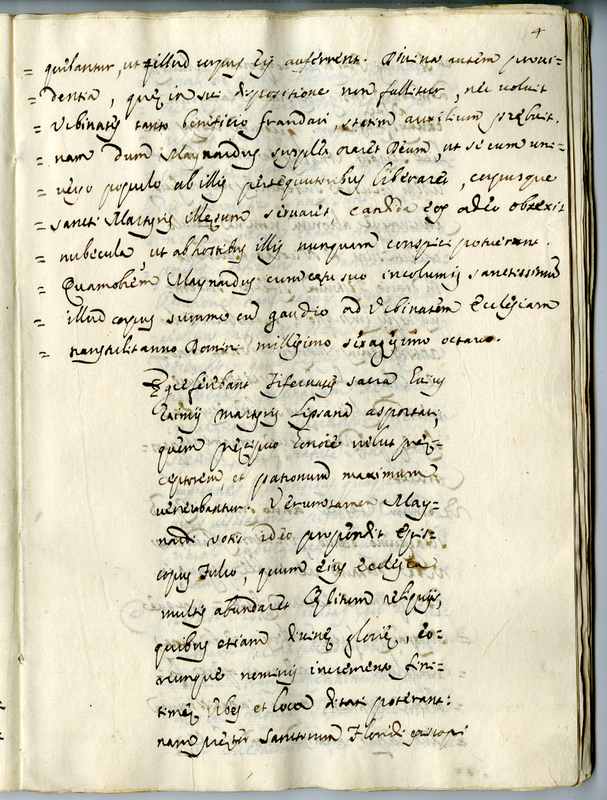 4
= quebantur, ut illud corpus eis auferrent. Divina autem provi=
= dentia, quę in sui dispositione non fallitur, nec voluit
= Urbinates tanto beneficio fraudari, statim auxilium prębuit.
= nam dum Maynardus supplex oraret Deum, ut se cum uni=
= verso populo ab illis persequutoribus liberaret, corpusque
= sancti Martyris illęsum servaret, candida eos adeo obtexit
= nubecula, ut ab hostibus illis nunquam conspici potuerint.
= Quamobrem Maynardus cum cętu suo incolumis sanctissimũ
= illud corpus summo cũ gaudio ad Urbinatem Ecclesiam
= transtulit anno Domini millesimo sexagesimo octavo.
Ęgre ferebant Tifernates sacra huius
Eximij martyris Lipsana asportari,
quem pręcipuo honore velut pręc=
ceptorem et patronum maximum
venerabantur. Veruntamen May=
nardi votis ideo propendit Epis=
copus Fulco, quum eius ecclesia
multis abundaret Cęlitum reliquijs,
quibus etiam divinę glorię, eo=
rumque nominis incremento fini=
timę Urbes et loca ditari poterant:
nam pręter Sanctorum Floridi episcopi